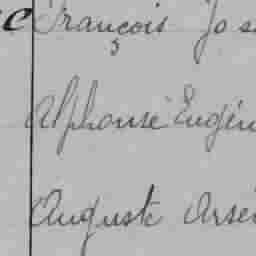 François Jos
Alphonse Eugén
Auguste Arsè